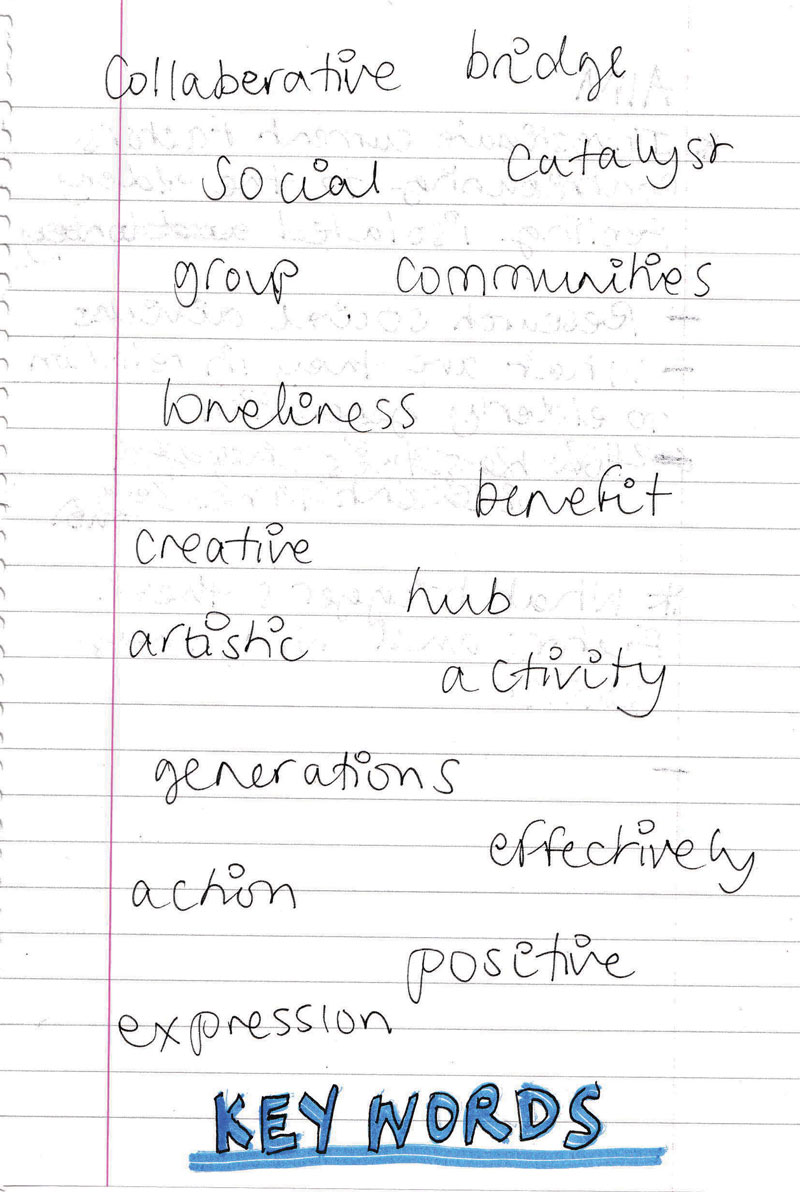 Collaberative bridge
social catalyst
group communities
loneliness
benefit
creative
hub
artistic
activity
generations
effectively
action
positive
expression
KEY WORDS